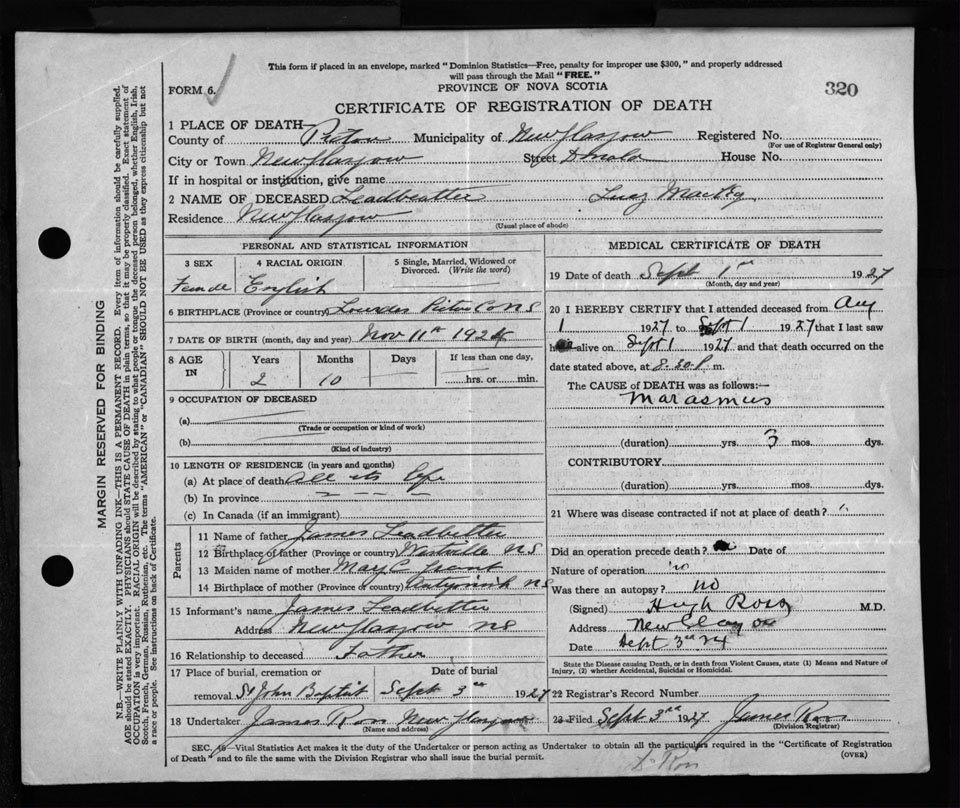 This form if placed in an envelope, marked "Dominion Statistics—Free, penalty for improper use $300," and properly addressed
will pass through the Mail "FREE."
FORM 6.
PROVINCE OF NOVA SCOTIA
320
CERTIFICATE OF REGISTRATION OF DEATH
1 PLACE OF DEATH—
County of Pictou Municipality of New Glasgow Registered No.
(For use of Registrar General only)
City or Town New Glasgow Street House No.
If in hospital or institution, give name
2 NAME OF DECEASED Leadbetter Lucy
Residence New Glasgow
(Usual place of abode)
PERSONAL AND STATISTICAL INFORMATION
3 SEX 4 RACIAL ORIGIN 5 Single, Married, Widowed or
Divorced. (Write the word)
Female English
6 BIRTHPLACE (Province or country) Lourdes Pictou Co NS
7 DATE OF BIRTH (month, day and year) Nov 11th 1924
8 AGE IN Years Months Days If less than one day,
2 10 hrs. or min.
9 OCCUPATION OF DECEASED
(a)
(Trade or occupation or kind of work)
(b)
(Kind of industry)
10 LENGTH OF RESIDENCE (in years and months)
(a) At place of death All its life
(b) In province
(c) In Canada (if an immigrant)
Parents
11 Name of father James Leadbetter
12 Birthplace of father (Province or country) Westville NS
13 Maiden name of mother Mary C Grant
14 Birthplace of mother (Province or country) Antigonish NS
15 Informant's name James Leadbetter
Address New Glasgow NS
16 Relationship to deceased Father
17 Place of burial, cremation or Date of burial
removal St John Baptist Sept 3rd 1927
18 Undertaker James Ross New Glasgow
(Name and address)
MEDICAL CERTIFICATE OF DEATH
19 Date of death Sept 1st 1927
(Month, day and year)
20 I HEREBY CERTIFY that I attended deceased from Aug
1 1927 to Sept 1 1927 that I last saw
h alive on Sept 1 1927 and that death occurred on the
date stated above, at 8.30 P. m.
The CAUSE of DEATH was as follows:—
Marasmus
(duration) yrs. 3 mos. dys.
CONTRIBUTORY
(duration) yrs. mos. dys.
21 Where was disease contracted if not at place of death?
Did an operation precede death? Date of
Nature of operation
Was there an autopsy? no
(Signed) Hugh Ross M.D.
Address New Glasgow
Date Sept 3rd 27
State the Disease causing Death, or in death from Violent Causes, state (1) Means and Nature of
Injury, (2) whether Accidental, Suicidal or Homicidal.
22 Registrar's Record Number
23 Filed Sept 3rd 1927 James Ross
(Division Registrar)
Vital Statistics Act makes it the duty of the Undertaker or person acting as Undertaker to obtain all the particulars required in the "Certificate of Registration
of Death" and to file the same with the Division Registrar who shall issue the burial permit.
(OVER)
Ross
MARGIN RESERVED FOR BINDING
N.B.—WRITE PLAINLY WITH UNFADING INK—THIS IS A PERMANENT RECORD. Every item of information should be carefully supplied.
AGE should be stated EXACTLY. PHYSICIANS should STATE CAUSE OF DEATH in plain terms, so that it may be properly classified. Exact statement of
OCCUPATION is very important. RACIAL ORIGIN will be described by stating to what people or tongue the deceased person belonged, whether English, Irish,
Scotch, French, German, Russian, Ruthenian, etc. The terms "AMERICAN" or "CANADIAN" SHOULD NOT BE USED as they express citizenship but not
a race or people. See instructions on back of Certificate.